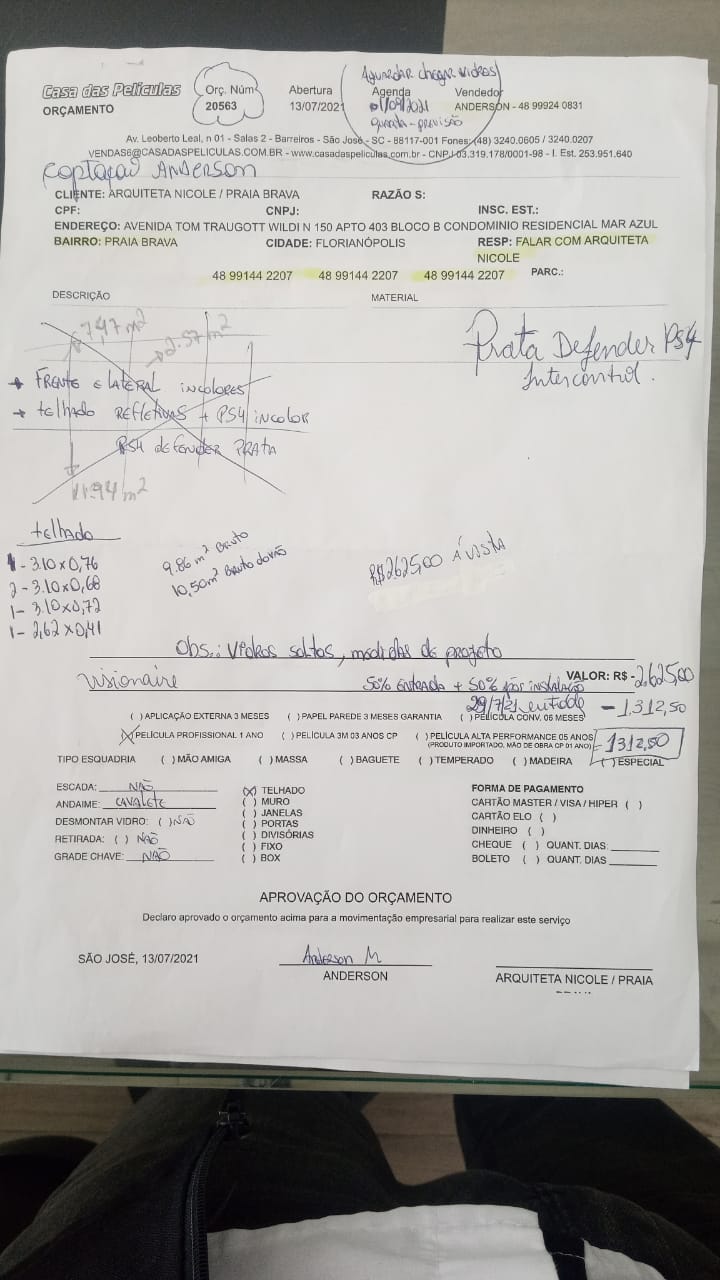 Casa das Películas
ORÇAMENTO
Orç. Núm
20563
Abertura
13/07/2021
Aguardar chegar vidros
Agenda
01/09/2021
quarta - previsão
Vendedor
ANDERSON - 48 99924 0831
Av. Leoberto Leal, n 01 - Salas 2 - Barreiros - São José - SC - 88117-001 Fones: (48) 3240.0605 / 3240.0207
VENDAS6@CASADASPELICULAS.COM.BR - www.casadaspeliculas.com.br - CNPJ 03.319.178/0001-98 - I. Est. 253.951.640
Captação ANDERSON
CLIENTE: ARQUITETA NICOLE / PRAIA BRAVA RAZÃO S:
CPF: CNPJ: INSC. EST.:
ENDEREÇO: AVENIDA TOM TRAUGOTT WILDI N 150 APTO 403 BLOCO B CONDOMINIO RESIDENCIAL MAR AZUL
BAIRRO: PRAIA BRAVA CIDADE: FLORIANÓPOLIS RESP: FALAR COM ARQUITETA
NICOLE
48 99144 2207 48 99144 2207 48 99144 2207 PARC.:
DESCRIÇÃO MATERIAL
7,47 m²
2.57 m²
Prata Defender PS4
Intercontrol.
→ FRENTE E LATERAL incolores
→ telhado REFLETIVAS + PS4 incolor
PS4 defender PRATA
11.94 m²
telhado
1 - 3.10 x 0,76
2 - 3.10 x 0,68
1 - 3.10 x 0,72
1 - 2,62 x 0,41
9.86 m² Bruto
10,50 m² Bruto do vão
R$ 2625,00 À VISTA
Obs.: Vidros soltos, medidas de projeto
Visionaire
50% ENTRADA + 50% pós instalação
VALOR: R$ - 2.625,00
29/7/21 entrada - 1.312,50
( ) APLICAÇÃO EXTERNA 3 MESES ( ) PAPEL PAREDE 3 MESES GARANTIA ( ) PELÍCULA CONV. 06 MESES
(X) PELÍCULA PROFISSIONAL 1 ANO ( ) PELÍCULA 3M 03 ANOS CP ( ) PELÍCULA ALTA PERFORMANCE 05 ANOS
(PRODUTO IMPORTADO, MÃO DE OBRA CP 01 ANO)
- 1312,50
TIPO ESQUADRIA ( ) MÃO AMIGA ( ) MASSA ( ) BAGUETE ( ) TEMPERADO ( ) MADEIRA ( ) ESPECIAL
ESCADA: NÃO
ANDAIME: CAVALETE
DESMONTAR VIDRO: ( ) NÃO
RETIRADA: ( ) NÃO
GRADE CHAVE: NÃO
(X) TELHADO
( ) MURO
( ) JANELAS
( ) PORTAS
( ) DIVISÓRIAS
( ) FIXO
( ) BOX
FORMA DE PAGAMENTO
CARTÃO MASTER / VISA / HIPER ( )
CARTÃO ELO ( )
DINHEIRO ( )
CHEQUE ( ) QUANT. DIAS:
BOLETO ( ) QUANT. DIAS
APROVAÇÃO DO ORÇAMENTO
Declaro aprovado o orçamento acima para a movimentação empresarial para realizar este serviço
SÃO JOSÉ, 13/07/2021
Anderson M
ANDERSON
ARQUITETA NICOLE / PRAIA